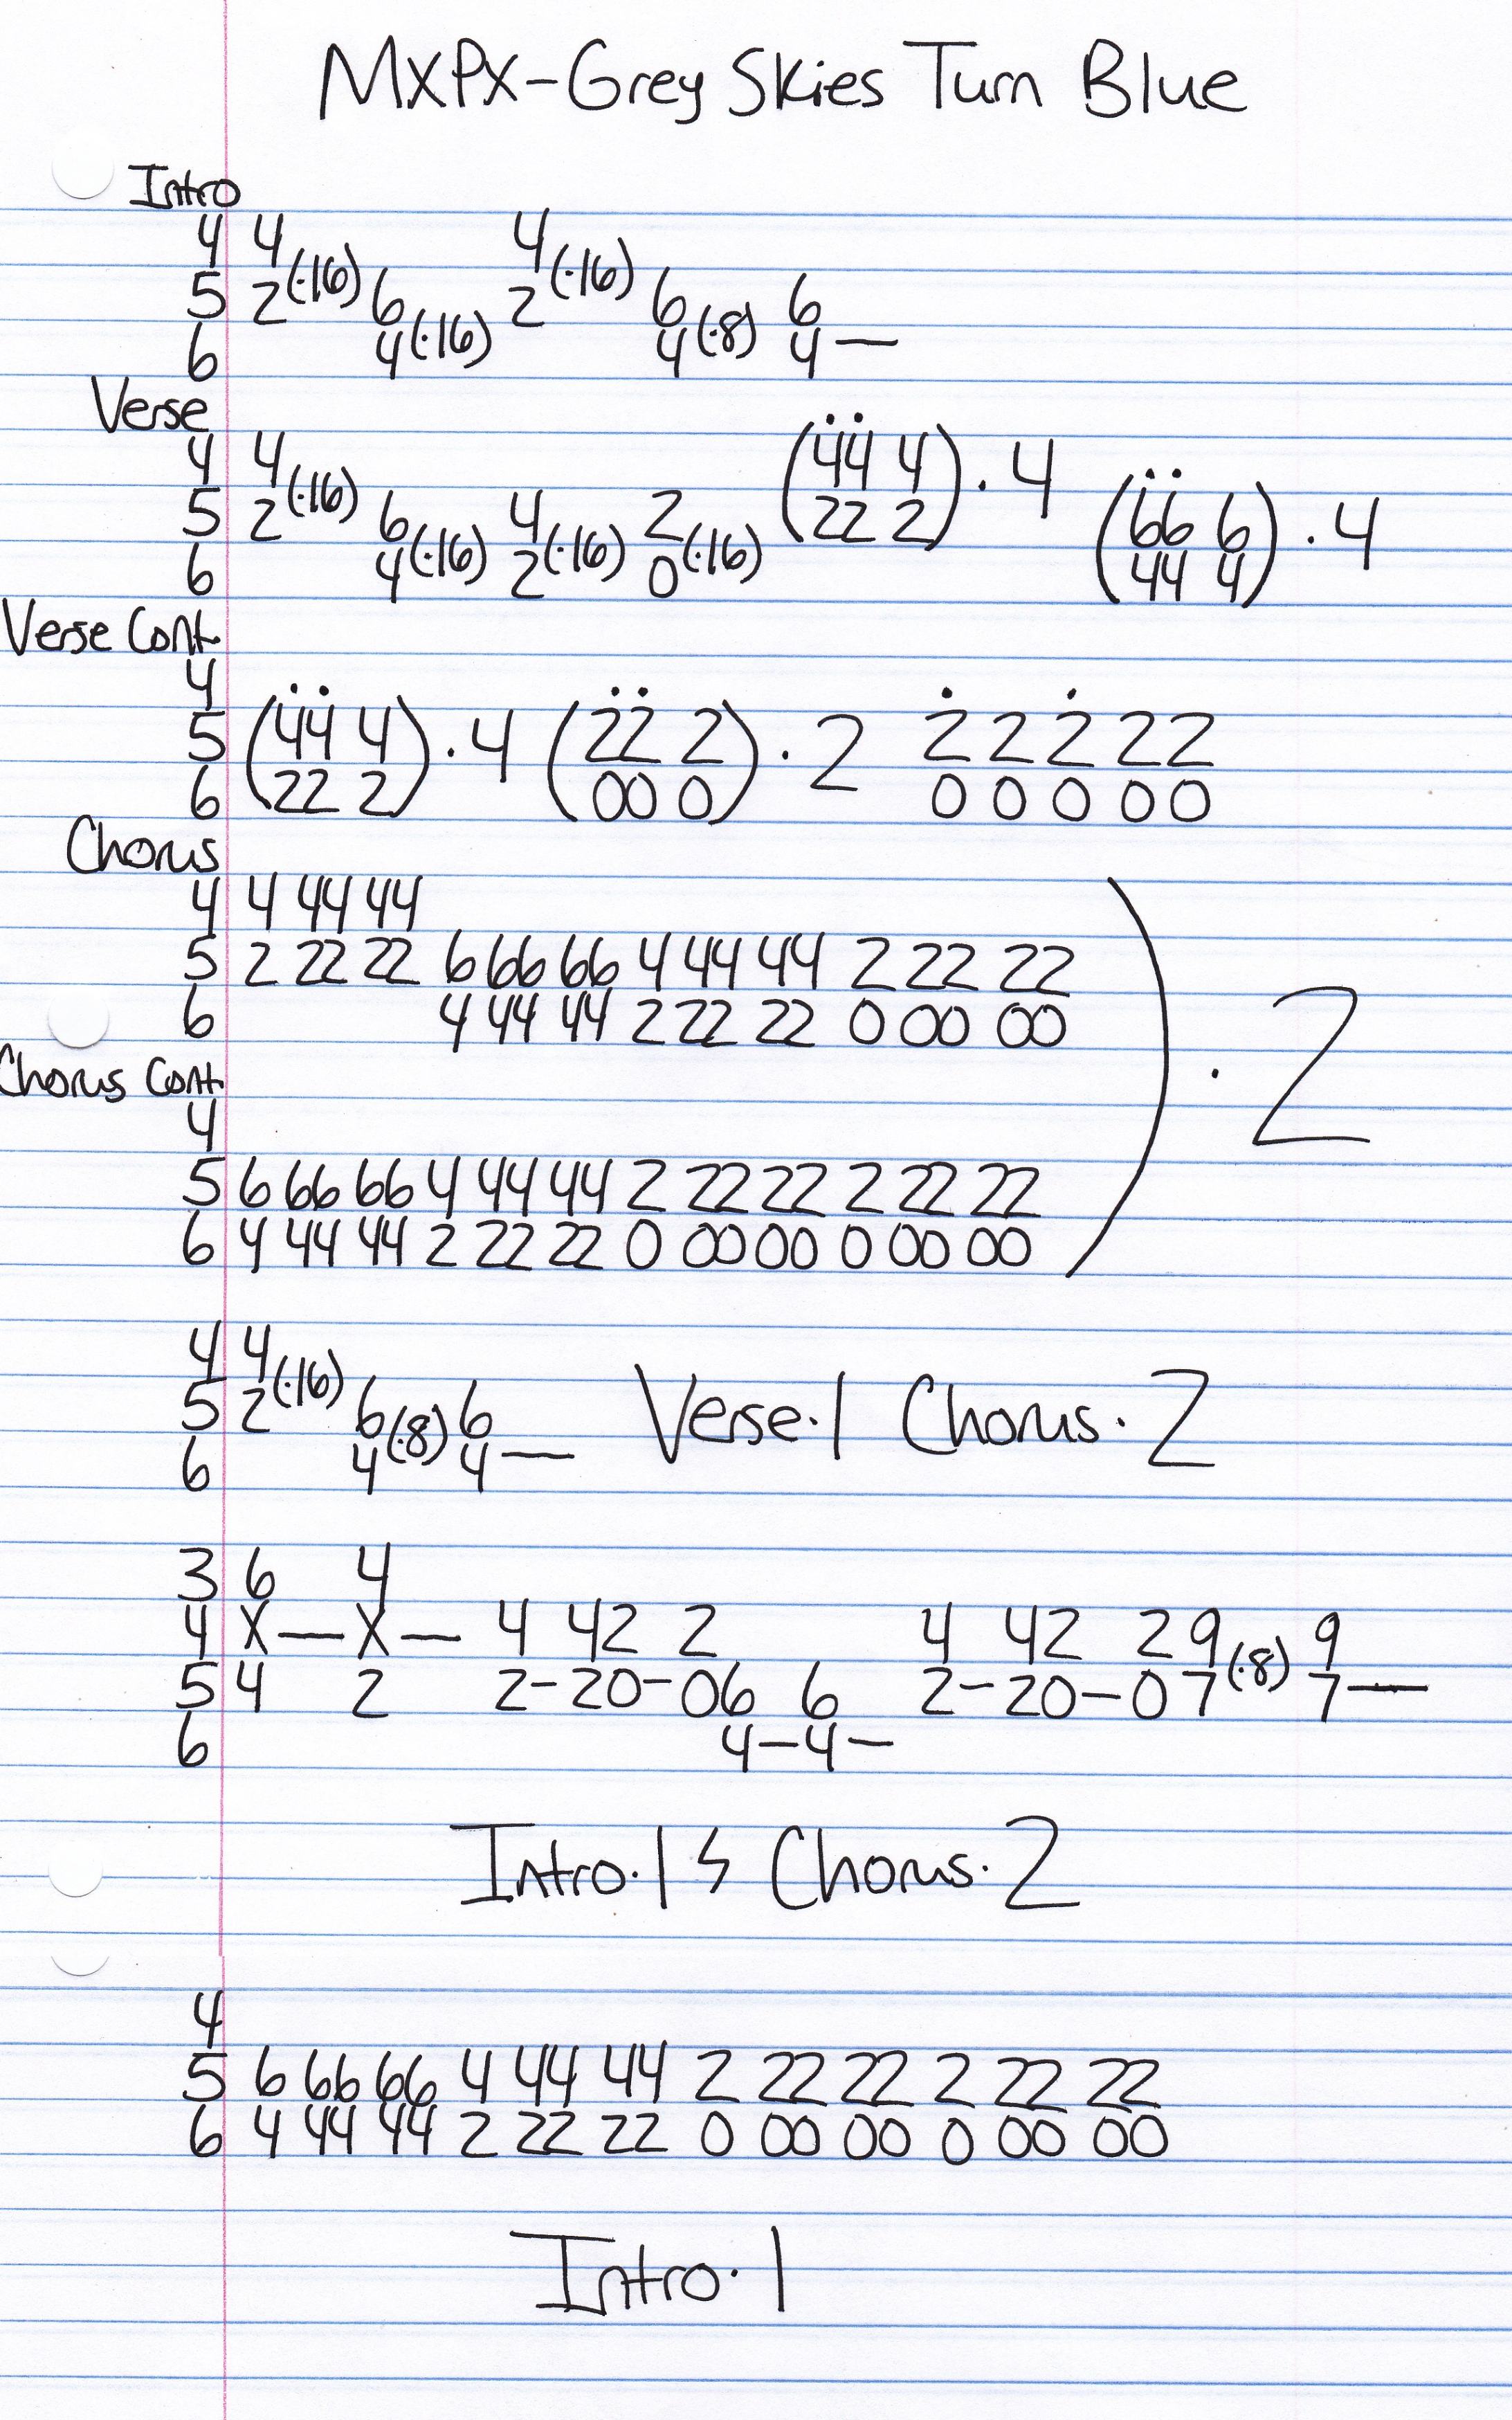 MXPX-Grey Skies Turn Blue
Intro
4 4 4
5 2(·16) 6 2(·16) 6 6
6 4(·16) 4(·8) 4—
Verse
4 4 (44 4)·4
5 2(·16) 6 4 2 (22 2) (66 6)·4
6 4(·16) 2(·16) 0(·16) (44 4)
Verse Cont.
4
5 (44 4)·4 (22 2)·2 2 2 2 2 2
6 (22 2) (00 0) 0 0 0 0 0
Chorus
4 4 44 44
5 2 22 22 6 66 66 4 44 44 2 22 22
6 4 44 44 2 22 22 0 00 00
) · 2
Chorus Cont.
4
5 6 66 66 4 44 44 2 22 22 2 22 22
6 4 44 44 2 22 22 0 00 00 0 00 00
4 4
5 2(·16) 6 6 Verse·1 Chorus·2
6 4(·8) 4—
3 6 4
4 X—X— 4 42 2 4 42 2 9 9
5 4 2 2-20-06 6 2-20-0 7(·8) 7—
6 4-4-
Intro·1 & Chorus·2
4
5 6 66 66 4 44 44 2 22 22 2 22 22
6 4 44 44 2 22 22 0 00 00 0 00 00
Intro·1